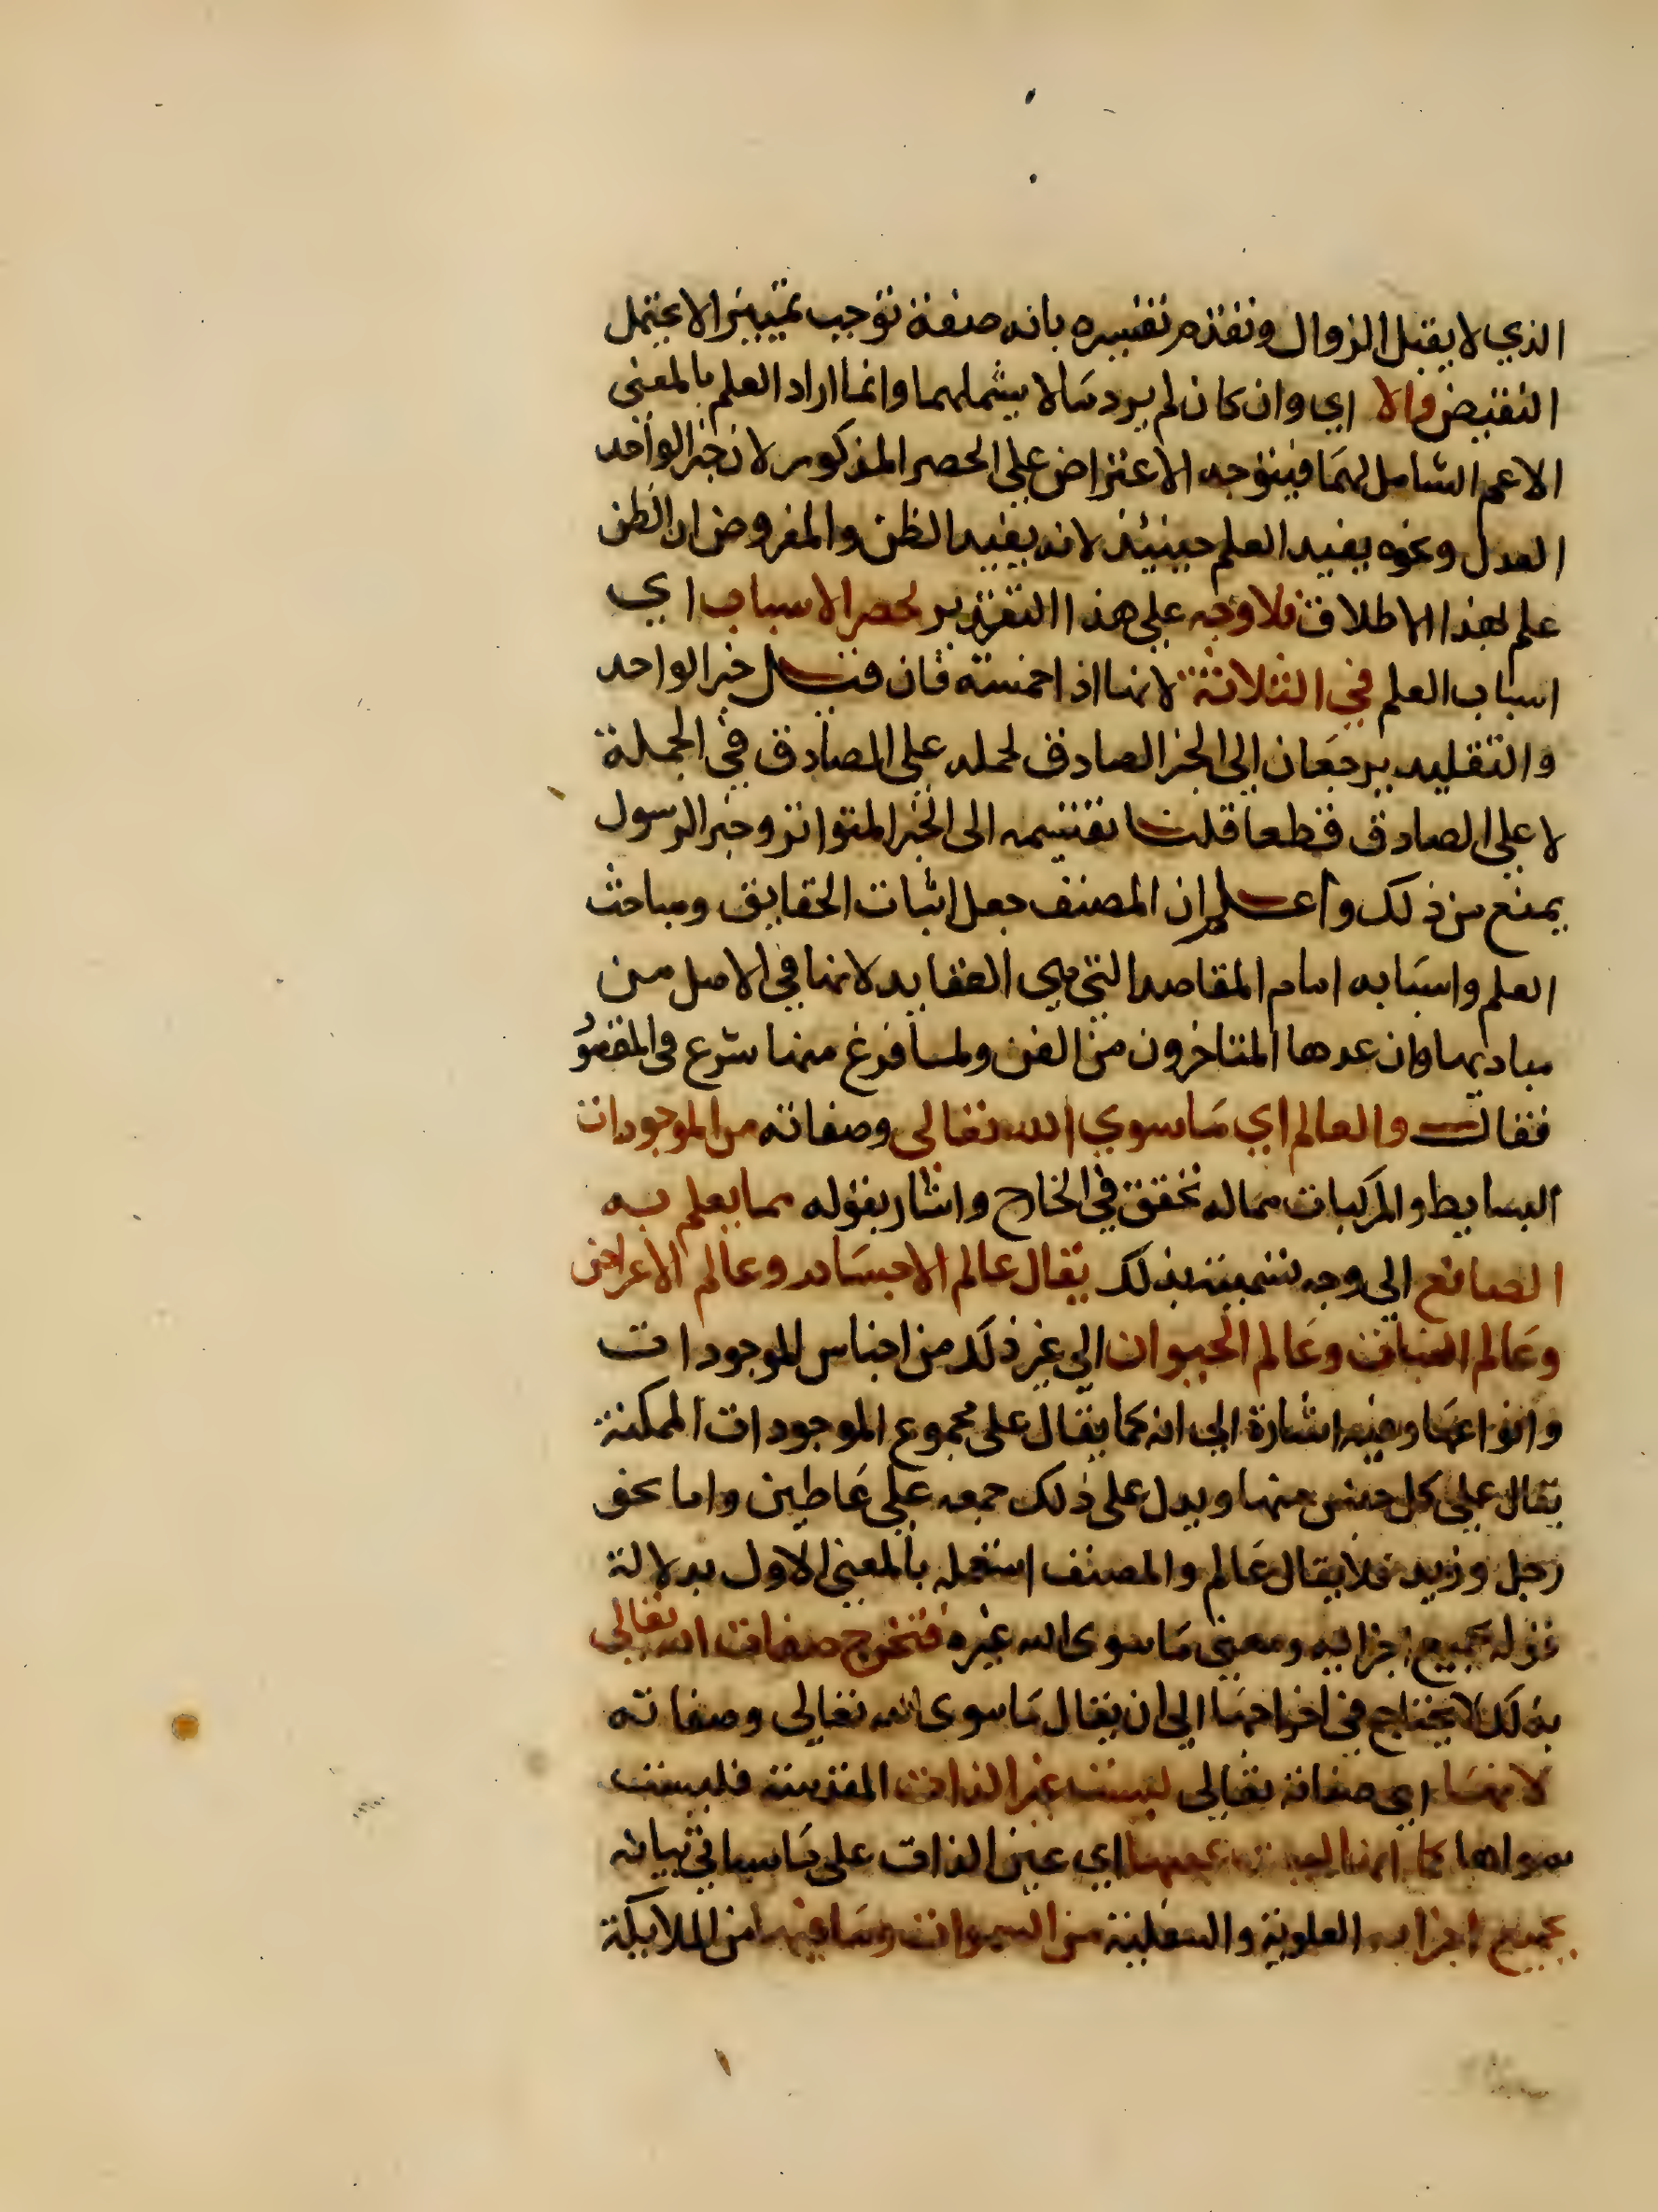 الذي لا يقبل الزوال وتقدم تفسيره بانه صفة توجب تمييزا لا يحتمل
النقيض والا اي وان كان لم يرد ما لا يشملهما وانما اراد العلم بالمعنى
الاعم الشامل لهما فيتوجه الاعتراض على الحصر المذكور لان خبر الواحد
العدل ونحوه يفيد العلم حينيئذ لانه يفيد الظن والمفروض ان الظن
علم بهذا الاطلاق فلا وجه على هذا التقدير لحصر الاسباب اي
اسباب العلم في الثلاثة لانها اذا خمسة فان قيل خبر الواحد
والتقليد يرجعان الى الخبر الصادق لحمله على الصادق في الجملة
لا على الصادق قطعا قلنا تقسيمه الى الخبر المتواتر وخبر الرسول
يمنع من ذلك واعلم ان المصنف جعل اثبات الحقايق ومباحث
العلم واسبابه امام المقاصد التي هي العقايد لانها في الاصل من
مباديها وان عدها المتاخرون من الفن ولما فرغ منها شرع في المقصود
فقال والعالم اي ما سوي الله تعالى وصفاته من الموجودات
البسايط والمركبات مما له تحقق في الخارج واشار بقوله مما يعلم به
الصانع الي وجه تسميته بذلك يقال عالم الاجسام وعالم الاعراض
وعالم النبات وعالم الحيوان الي غير ذلك من اجناس الموجودات
وانواعها وفيه اشارة الي انه كما يقال على مجموع الموجودات الممكنة
يقال علي كل جنس منها ويدل على ذلك جمعه علي عالمين واما نحو
رجل وزيد فلا يقال عالم والمصنف استعمله بالمعنى الاول بدلالة
قوله بجميع اجزايه ومعنى ما سوى الله غيره فتخرج صفات الله تعالى
بذلك لا يحتاج في اخراجها الي ان يقال ما سوى الله تعالى وصفاته
لانها اي صفاته تعالى ليست غير الذات المقدسة فليست
سواها كما انها ليست عينها اي عين الذات على ما سياتي بيانه
بجميع اجزايه العلوية والسفلية من السموات وما فيها من الملايكة